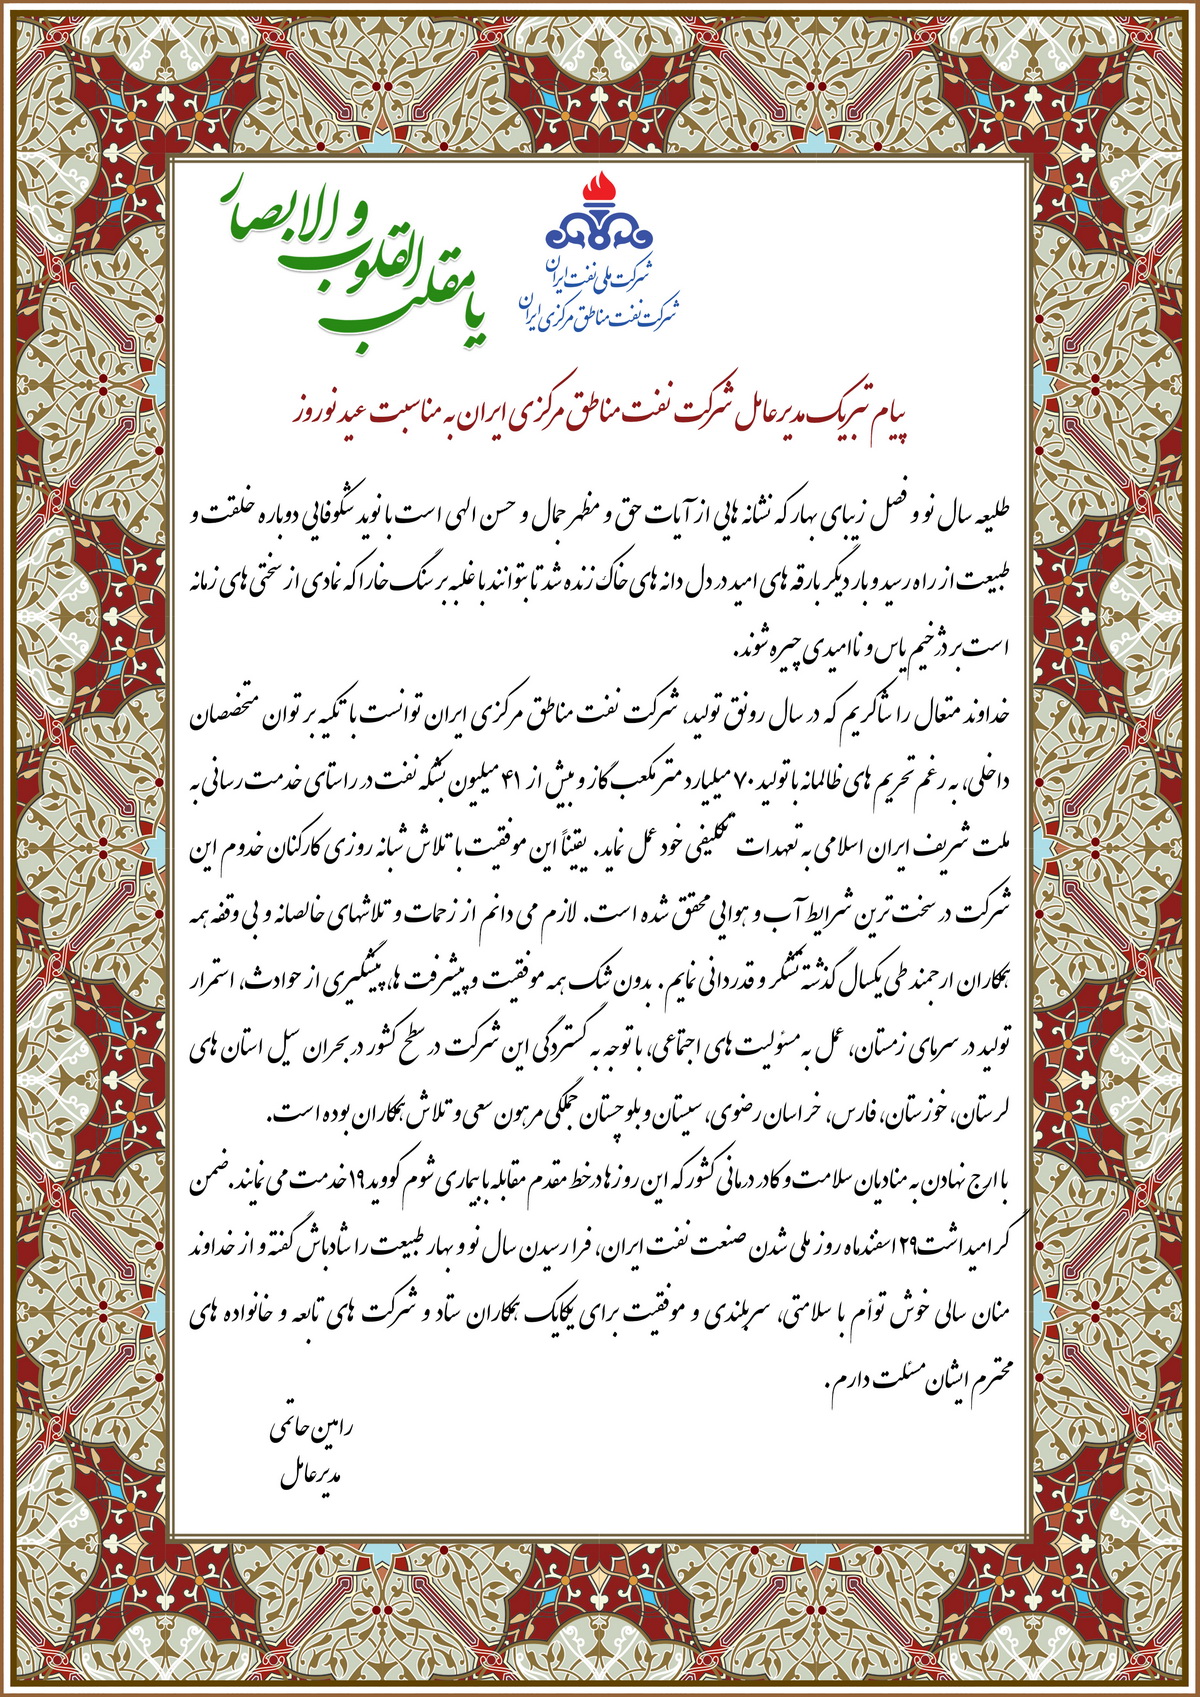 یا مقلب القلوب و الابصار
شرکت ملی نفت ایران
شرکت نفت مناطق مرکزی ایران
پیام تبریک مدیرعامل شرکت نفت مناطق مرکزی ایران به مناسبت عید نوروز
طلیعه سال نو و فصل زیبای بهار که نشانه هایی از آیات حق و مظهر جمال و حسن الهی است با نوید شکوفایی دوباره خلقت و
طبیعت از راه رسید و بار دیگر بارقه های امید در دل دانه های خاک زنده شد تا بتوانند با غلبه بر سنگ خارا که نمادی از سختی های زمانه
است بر دژخیم یاس و ناامیدی چیره شوند.
خداوند متعال را شاکریم که در سال رونق تولید، شرکت نفت مناطق مرکزی ایران توانست با تکیه بر توان متخصصان
داخلی، به رغم تحریم های ظالمانه با تولید ۷۰ میلیارد متر مکعب گاز و بیش از ۴۱ میلیون بشکه نفت در راستای خدمت رسانی به
ملت شریف ایران اسلامی به تعهدات تکلیفی خود عمل نماید. یقیناً این موفقیت با تلاش شبانه روزی کارکنان خدوم این
شرکت در سخت ترین شرایط آب و هوایی محقق شده است. لازم می دانم از زحمات و تلاشهای خالصانه و بی وقفه همه
همکاران ارجمند طی یکسال گذشته تشکر و قدردانی نمایم. بدون شک همه موفقیت و پیشرفت ها، پیشگیری از حوادث، استمرار
تولید در سرمای زمستان، عمل به مسئولیت های اجتماعی، با توجه به گستردگی این شرکت در سطح کشور در بحران سیل استان های
لرستان، خوزستان، فارس، خراسان رضوی، سیستان و بلوچستان جملگی مرهون سعی و تلاش همکاران بوده است.
با ارج نهادن به منادیان سلامت و کادر درمانی کشور که این روزها در خط مقدم مقابله با بیماری شوم کووید ۱۹ خدمت می نمایند. ضمن
گرامیداشت ۲۹ اسفندماه روز ملی شدن صنعت نفت ایران، فرا رسیدن سال نو و بهار طبیعت را شادباش گفته و از خداوند
منان سالی خوش توأم با سلامتی، سربلندی و موفقیت برای یکایک همکاران ستاد و شرکت های تابعه و خانواده های
محترم ایشان مسئلت دارم.
رامین حاتمی
مدیرعامل